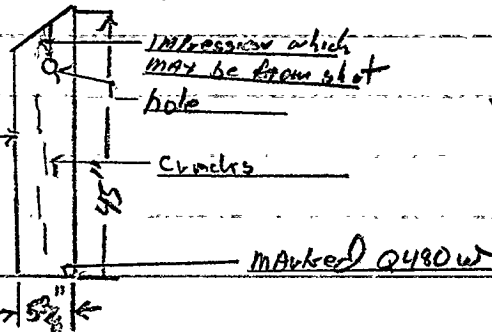 Impression which
may be from shot
hole
Cracks
45"
marked Q480 w